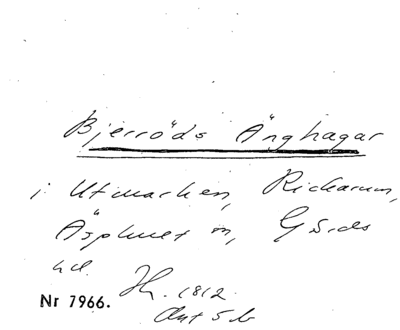 Bjerröds Änghagar
i Utmarken, Rickarum,
Äsphult sn, Gärds
hd. Jb. 1812
Akt 5 b
Nr 7966.